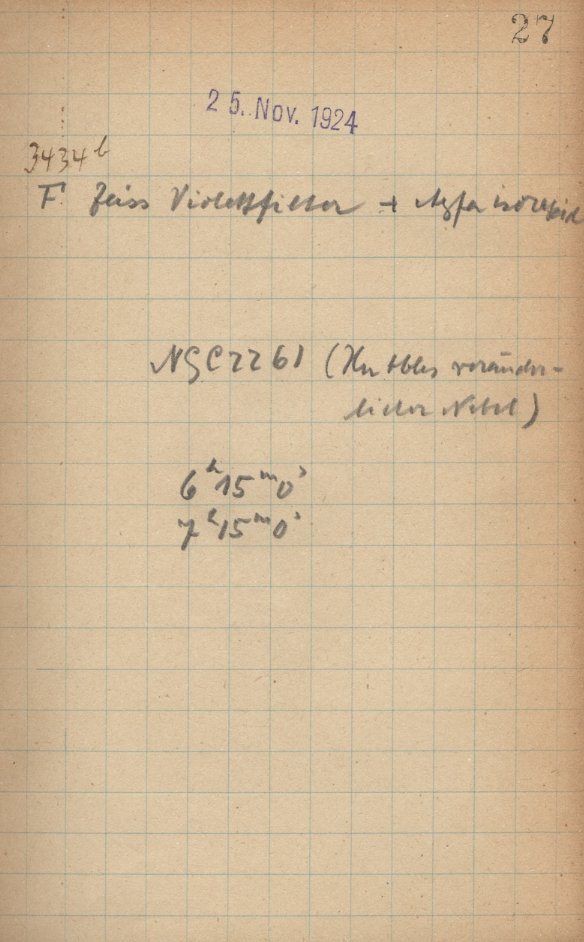 27
25. Nov. 1924
3434 b
F. Zeiss Violettfilter + Agfa isorapid
NGC 2261 (Hubbles veränder-
licher Nebel)
6h 15m 0s
7h 15m 0s